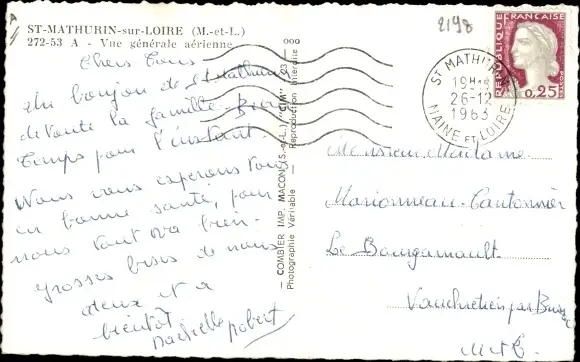 ST-MATHURIN-sur-LOIRE (M.-et-L.)
272-53 A - Vue générale aérienne
2198
Chers Tous
Un bonjour de St Mathurin
de toute la famille. Beau
temps pour l'instant
Nous vous esperons tous
en bonne santé, pour
nous tout va bien.
grosses bises de nous
deux et a
bientôt
robert
— COMBIER IMP. MACON (S.-et-L.) "CIM"
Photographie Véritable - Reproduction interdite
RÉPUBLIQUE FRANÇAISE
POSTES
0,25
ST MATHURIN
19H
26-12
1963
MAINE ET LOIRE
Monsieur Madame
Marionneau-Cantonnier
Le Bourgamault
Vauchretien par Brissac
M et L